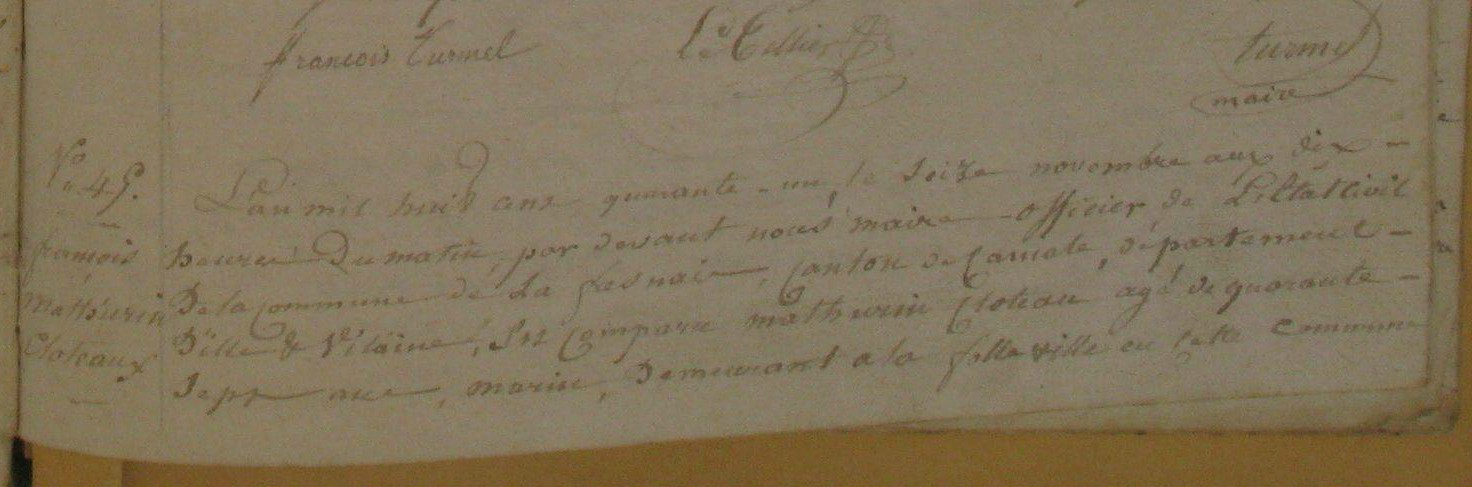 françois Turmel
Le Tellier
turmel
maire
No 45.
françois
Mathurin
Cloteaux
L'an mil huit cens quarante-un, le seize novembre aux dix-
heures du matin, par devant nous maire officier de L'Etat Civil
De la commune de La fresnaie, Canton de Cancale, département-
D'ille & Vilaine, Est Comparu mathurin Cloteau agé de quarante-
Sept ans, marin, Demeurant a la folle ville en cette commune